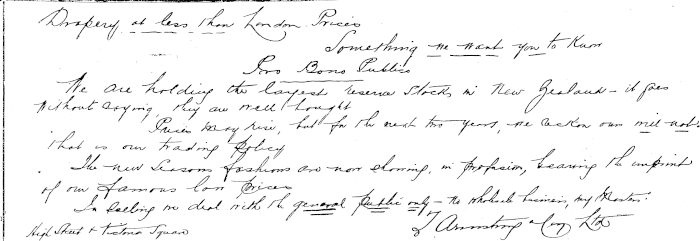 Drapery at less than London Prices
Something we want you to Know
Pro Bono Publico
We are holding the largest reserve Stocks in New Zealand - it goes
without saying, they are well bought
Prices may rise, but for the next two years, we reckon ours will not,
that is our trading Policy
The new Seasons fashions are now showing, in profusion, bearing the imprint
of our famous low Prices
In selling we deal with the general public only - no wholesale business, my Hearties.
T Armstrong & Coy Ltd
High Street & Victoria Square